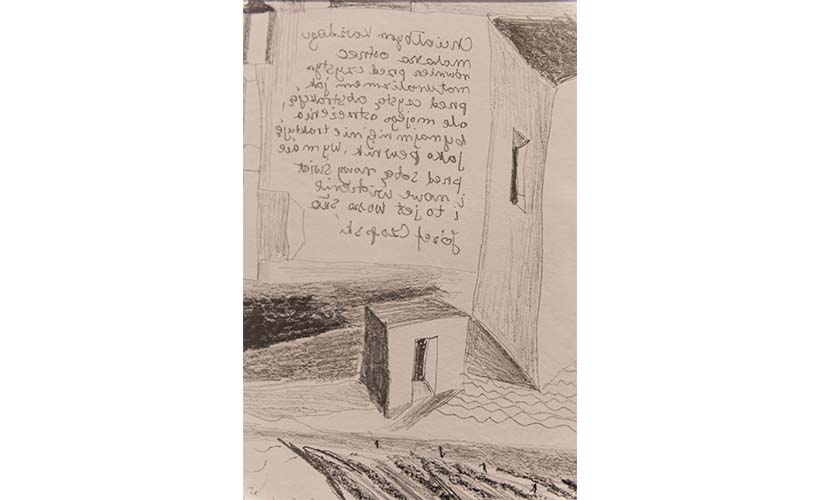 Chciałbym każdego
malarza ostrzec
również przed czystym
naturalizmem jak
przed czystą abstrakcją,
ale mojego ostrzeżenia
bynajmniej nie traktuję
jako pewnik. Wy macie
przed sobą nowy świat
i nowe widzenie
i to jest wasza siła
Józef Czapski